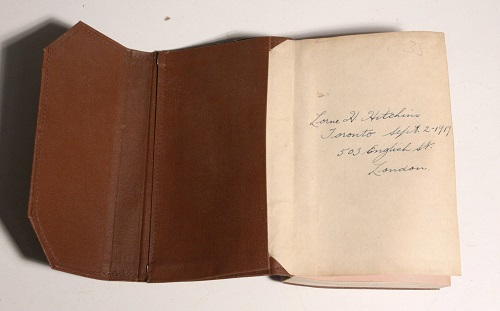 35
Lorne H Hitchins
Toronto Sept. 2-1917
503 English St.
London.